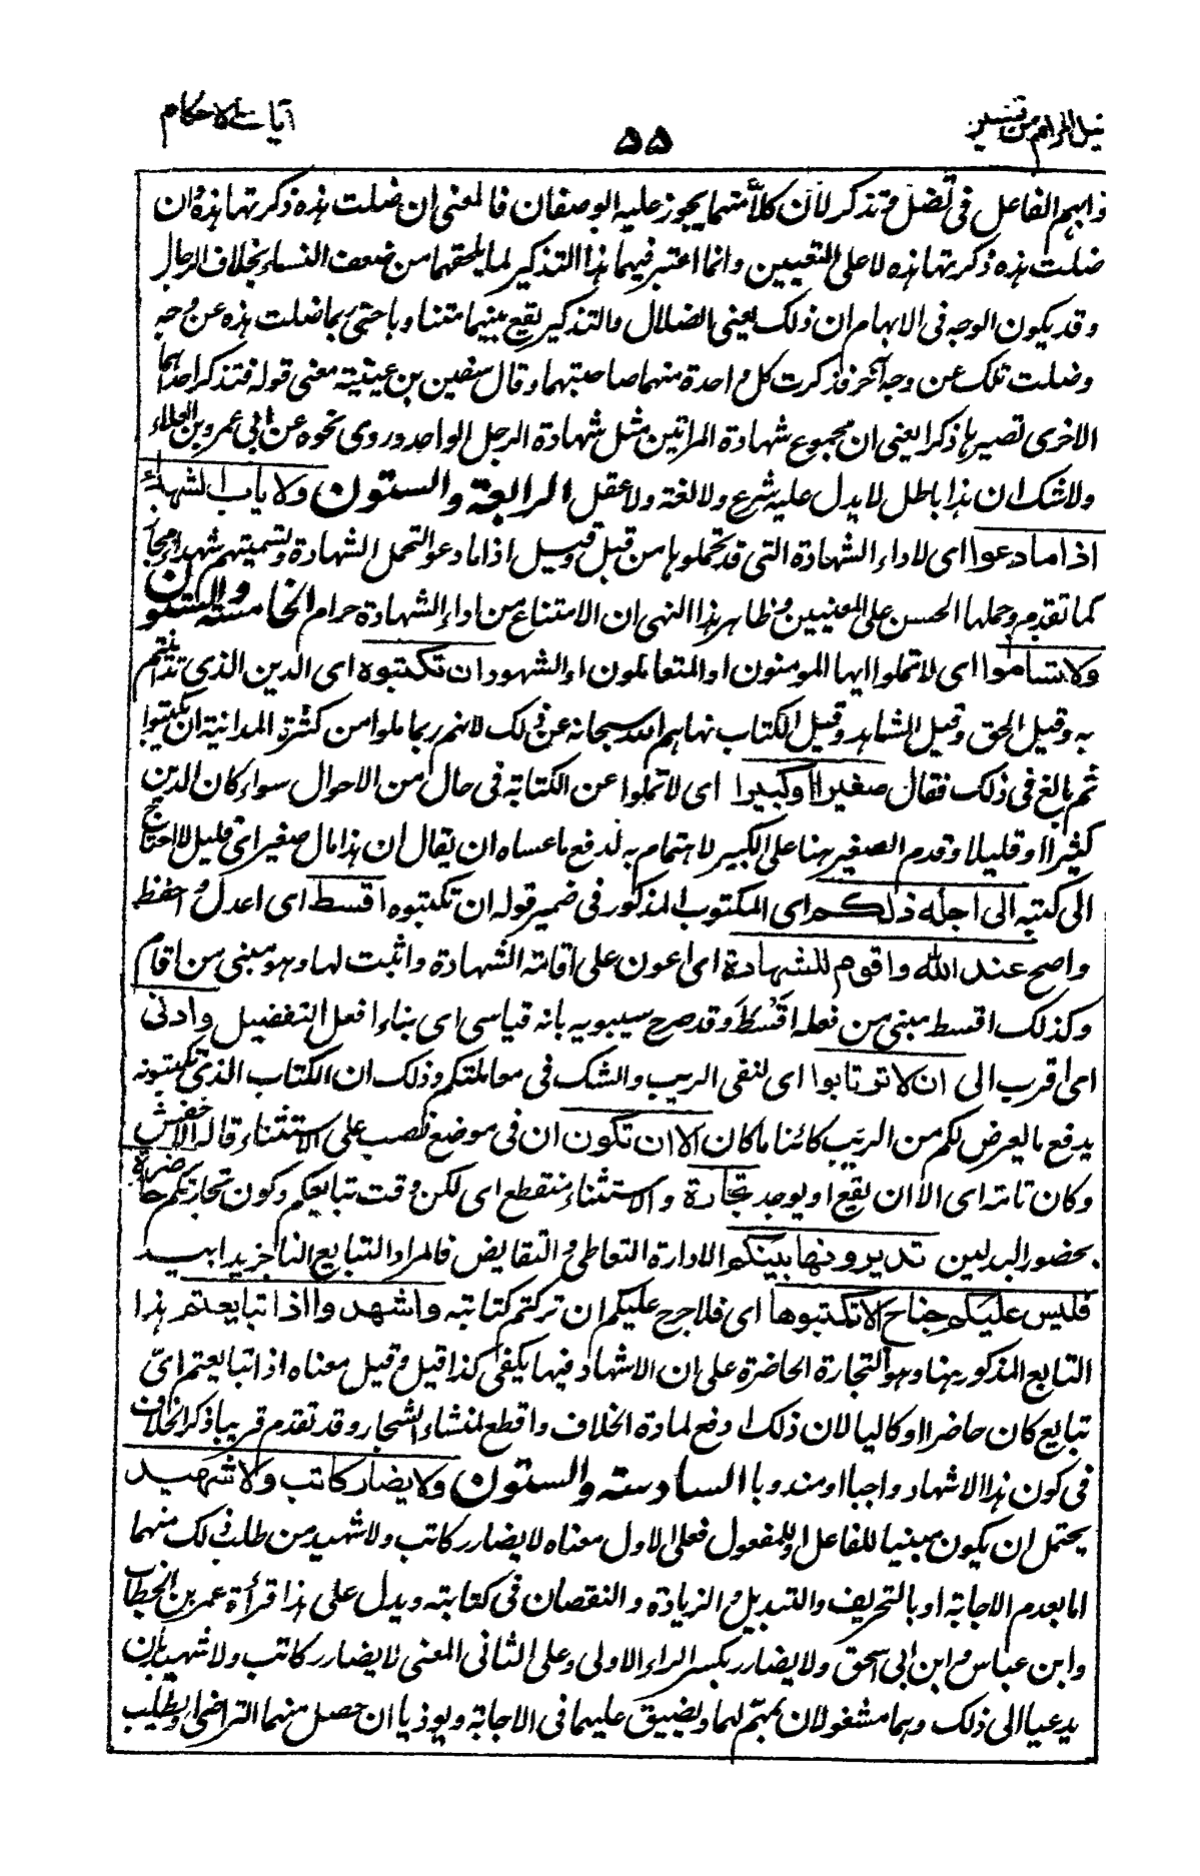 نيل المرام من تفسير
۵۵
آيات الاحكام
وابهم الفاعل فى تضل وتذكر لان كلاً منهما يجوز عليه الوصفان فالمعنى ان ضلت هذه ذكرتها هذه وان
ضلت هذه ذكرتها هذه لا على التعيين وانما اعتبر فيهما هذا التذكير لما يلحقهما من ضعف النساء بخلاف الرجال
وقد يكون الوجه فى الابهام ان ذلك يعنى الضلال والتذكير يقع بينهما متناوبا حتى ربما ضلت هذه عن وجه
وضلت تلك عن وجه آخر فذكرت كل واحدة منهما صاحبتهما وقال سفين بن عيينة معنى قوله فتذكر احداهما
الاخرى تصيرها ذكرا يعنى ان مجموع شهادة المرأتين مثل شهادة الرجل الواحد وروى نحوه عن ابى عمرو بن العلاء
ولا شك ان هذا باطل لا يدل عليه شرع ولا لغة ولا عقل الرابعة والستون ولا ياب الشهداء
اذا ما دعوا اى لاداء الشهادة التى قد تحملوها من قبل وقيل اذا ما دعو التحمل الشهادة وتسميتهم شهداء مجازا
كما تقدم وحملها الحسن على المعنيين وظاهر هذا النهى ان الامتناع من اداء الشهادة حرام الخامسة والستون
ولا تساموا اى لا تملوا ايها المومنون او المتعاملون او الشهود ان تكتبوه اى الدين الذى تداينتم
به وقيل الحق وقيل الشاهد وقيل الكتاب نهاهم الله سبحانه عن ذلك لانهم ربما ملوا من كثرة المداينة ان يكتبوا
ثم بالغ فى ذلك فقال صغيرا او كبيرا اى لا تملوا عن الكتابة فى حال من الاحوال سواء كان الدين
كثيرا او قليلا وقدم الصغير هنا على الكبير لاهتمام به لدفع ما عساه ان يقال ان هذا مال صغير اى قليل لا احتاج
الى كتبه الى اجله ذلكم اى المكتوب المذكور فى ضمير قوله ان تكتبوه اقسط اى اعدل واحفظ
واصح عند الله واقوم للشهادة اى اعون على اقامة الشهادة واثبت لها وهو مبنى من اقام
وكذلك اقسط مبنى من فعله اقسط وقد صرح سيبويه بانه قياسى اى بناء افعل التفضيل وادنى
اى اقرب الى ان لا ترتابوا اى لنفى الريب والشك فى معاملتكم وذلك ان الكتاب الذى تكتبونه
يدفع ما يعرض لكم من الريب كائنا ما كان الا ان تكون ان فى موضع نصب على الاستثناء قاله الاخفش
وكان تامة اى الا ان يقع او يوجد تجارة والاستثناء منقطع اى لكن وقت تبايعكم وكون تجارتكم حاضرة
بحضور البدلين تديرونها بينكم الادارة التعاطى والتقابض فالمراد التبايع الناجز يدا بيد
فليس عليكم جناح الا تكتبوها اى فلا حرج عليكم ان تركتم كتابته واشهدوا اذا تبايعتم هذا
التبايع المذكور هنا وهو التجارة الحاضرة على ان الاشهاد فيها يكفى كذا قيل وقيل معناه اذا تبايعتم اىّ
تبايع كان حاضرا او كاليا لان ذلك ادفع لمادة الخلاف واقطع لمنشاء الشجار وقد تقدم قريبا ذكر الخلاف
فى كون هذا الاشهاد واجبا او مندوبا السادسة والستون ولا يضار كاتب ولا شهيد
يحتمل ان يكون مبنيا للفاعل او للمفعول فعلى الاول معناه لا يضارر كاتب ولا شهيد من طلب ذلك منهما
اما بعدم الاجابة او بالتحريف والتبديل والزيادة والنقصان فى كتابته ويدل على هذا قرأة عمر بن الخطاب
وابن عباس وابن ابى اسحق ولا يضارر بكسر الراء الاولى وعلى الثانى المعنى لا يضارر كاتب ولا شهيد بان
يدعيا الى ذلك وهما مشغولان بمهم لهما ويضيق عليهما فى الاجابة ويوذيا ان حصل منهما التراخى او يطلب